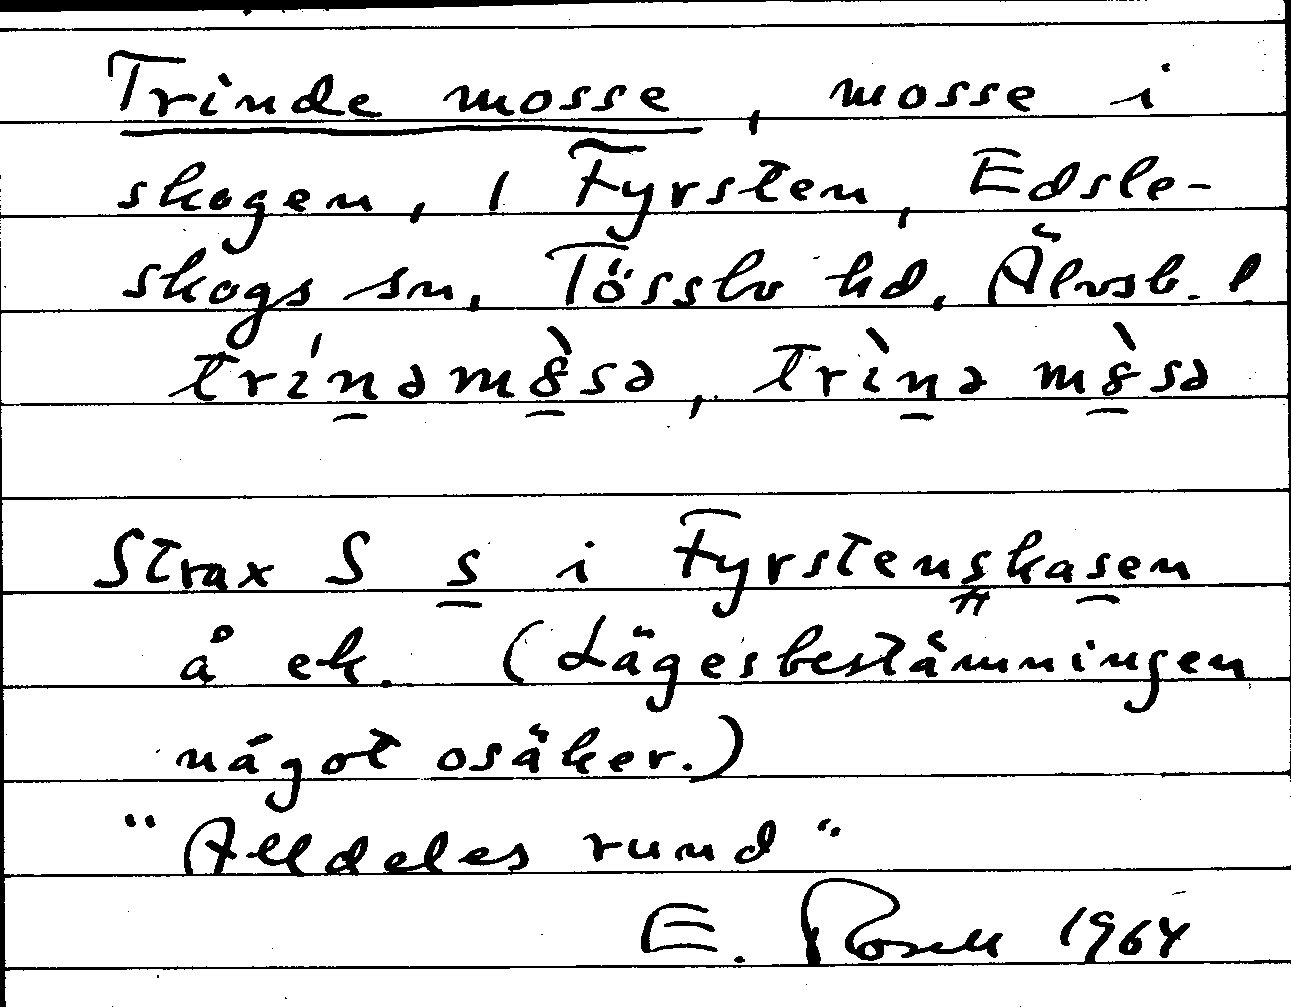 Trinde mosse, mosse i
skogen, 1 Fyrsten, Edsle-
skogs sn, Tössbo hd, Älvsb. l.
trínəmȍsə, trìnə mȍsə
Strax S s i Fyrstenskasen
å ek. (Lägesbestämningen
något osäker.)
"Alldeles rund"
E. Rosell 1964